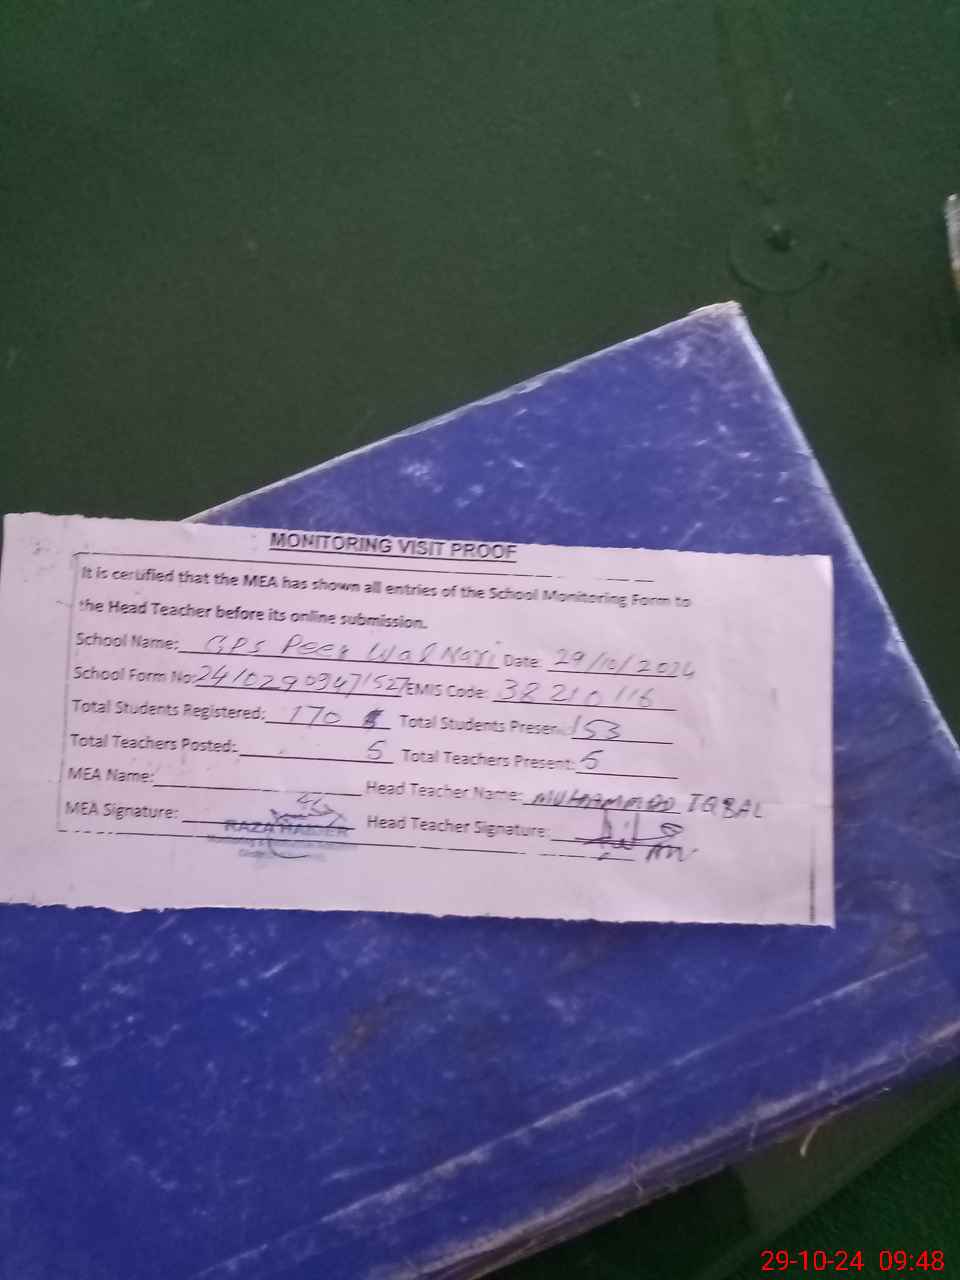 MONITORING VISIT PROOF
It is certified that the MEA has shown all entries of the School Monitoring Form to
the Head Teacher before its online submission.
School Name: GPS Peer Wal Nari Date: 29/10/2024
School Form No: EMIS Code: 38210116
Total Students Registered: 170 Total Students Present: 153
Total Teachers Posted: 5 Total Teachers Present: 5
MEA Name: Head Teacher Name: MUHAMMAD IQBAL
MEA Signature: Head Teacher Signature:
RAZA HAIDER
29-10-24 09:48